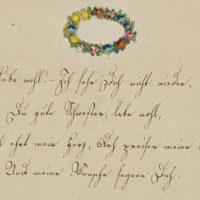 Lebe wohl! – Ich sehe Dich nicht wieder,
Du gute Schwester, lebe wohl,
ehrt mein Herz, Dich preisen meine
Und meine Wünsche segnen Dich.